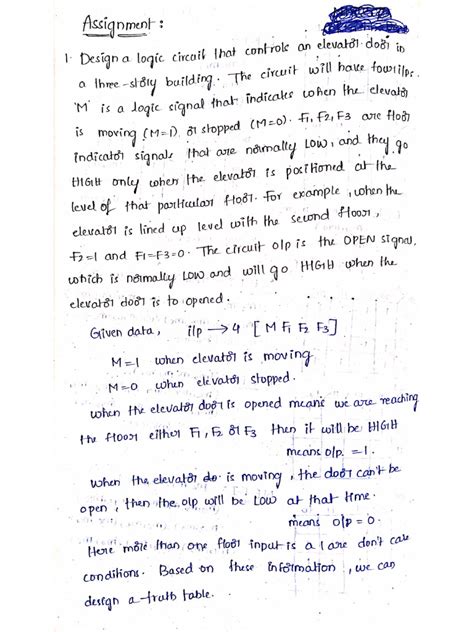 Assignment :
1. Design a logic circuit that controls an elevator door in
a three-story building. The circuit will have four i/ps.
'M' is a logic signal that indicates when the elevator
is moving (M=1) or stopped (M=0). F1, F2, F3 are floor
indicator signals that are normally LOW, and they go
HIGH only when the elevator is positioned at the
level of that particular floor. For example, when the
elevator is lined up level with the second floor,
F2=1 and F1=F3=0. The circuit o/p is the OPEN signal,
which is normally LOW and will go HIGH when the
elevator door is to opened.
Given data, i/p → 4 [M F1 F2 F3]
M=1 when elevator is moving
M=0, when elevator stopped.
when the elevator door is opened means we are reaching
the floor either F1, F2 or F3 then it will be HIGH
means o/p. = 1.
when the elevator do is moving, the door can't be
open, then the o/p will be LOW at that time.
means o/p = 0.
Here more than one floor input is a 1 are don't care
conditions. Based on these information, we can
design a truth table.